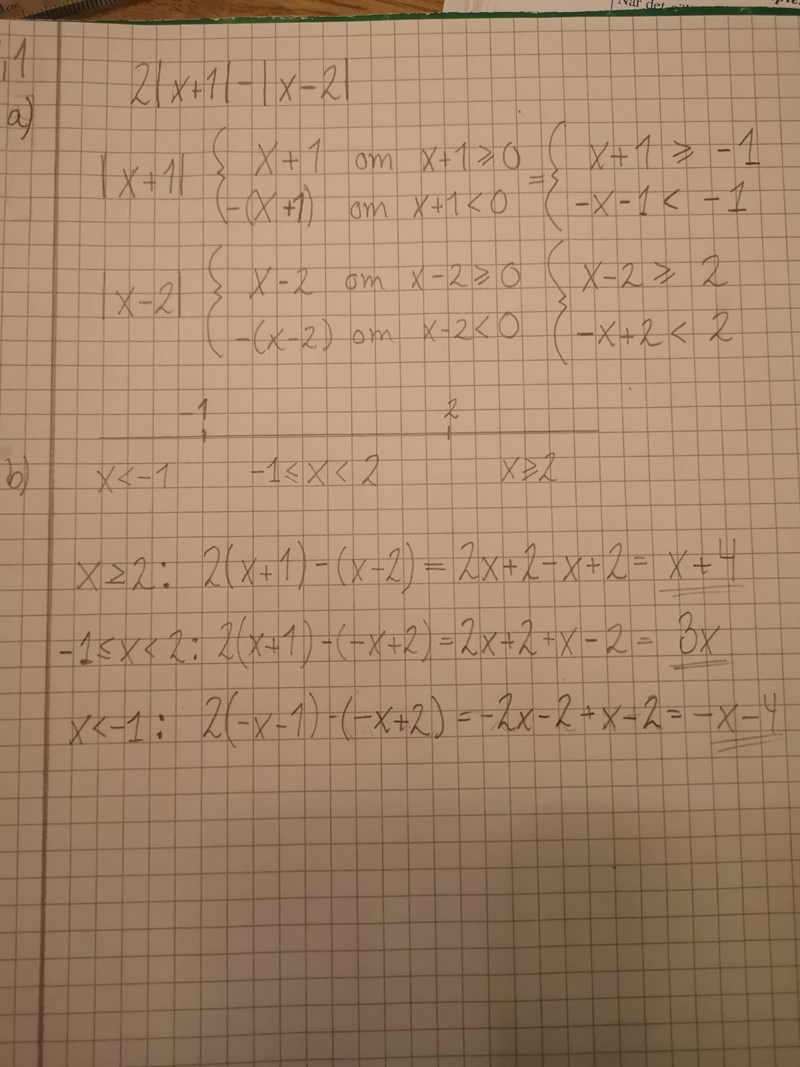 1
2|x+1|-|x-2|
a)
|x+1| { x+1 om x+1⩾0 = { x+1 ⩾ -1
-(x+1) om x+1<0 -x-1 < -1
|x-2| { x-2 om x-2⩾0 { x-2 ⩾ 2
-(x-2) om x-2<0 -x+2 < 2
-1 2
b) x<-1 -1⩽x<2 x⩾2
x≥2: 2(x+1)-(x-2)=2x+2-x+2= x+4
-1≤x<2: 2(x+1)-(-x+2)=2x+2+x-2= 3x
x<-1: 2(-x-1)-(-x+2)=-2x-2+x-2=-x-4